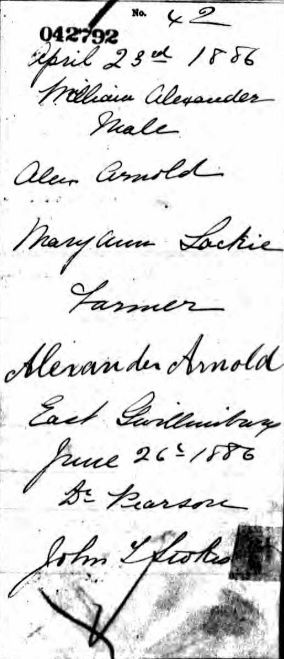 No. 42
042792
April 23rd 1886
William Alexander
Male
Alex Arnold
Mary Ann Lackie
Farmer
Alexander Arnold
East Gwillimbury
June 26th 1886
Dr Pearson
John T Stokes